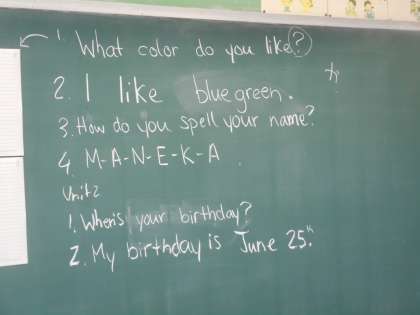 1. What color do you like?
2. I like blue green.
3. How do you spell your name?
4. M-A-N-E-K-A
Unit 2
1. When's your birthday?
2. My birthday is June 25th.